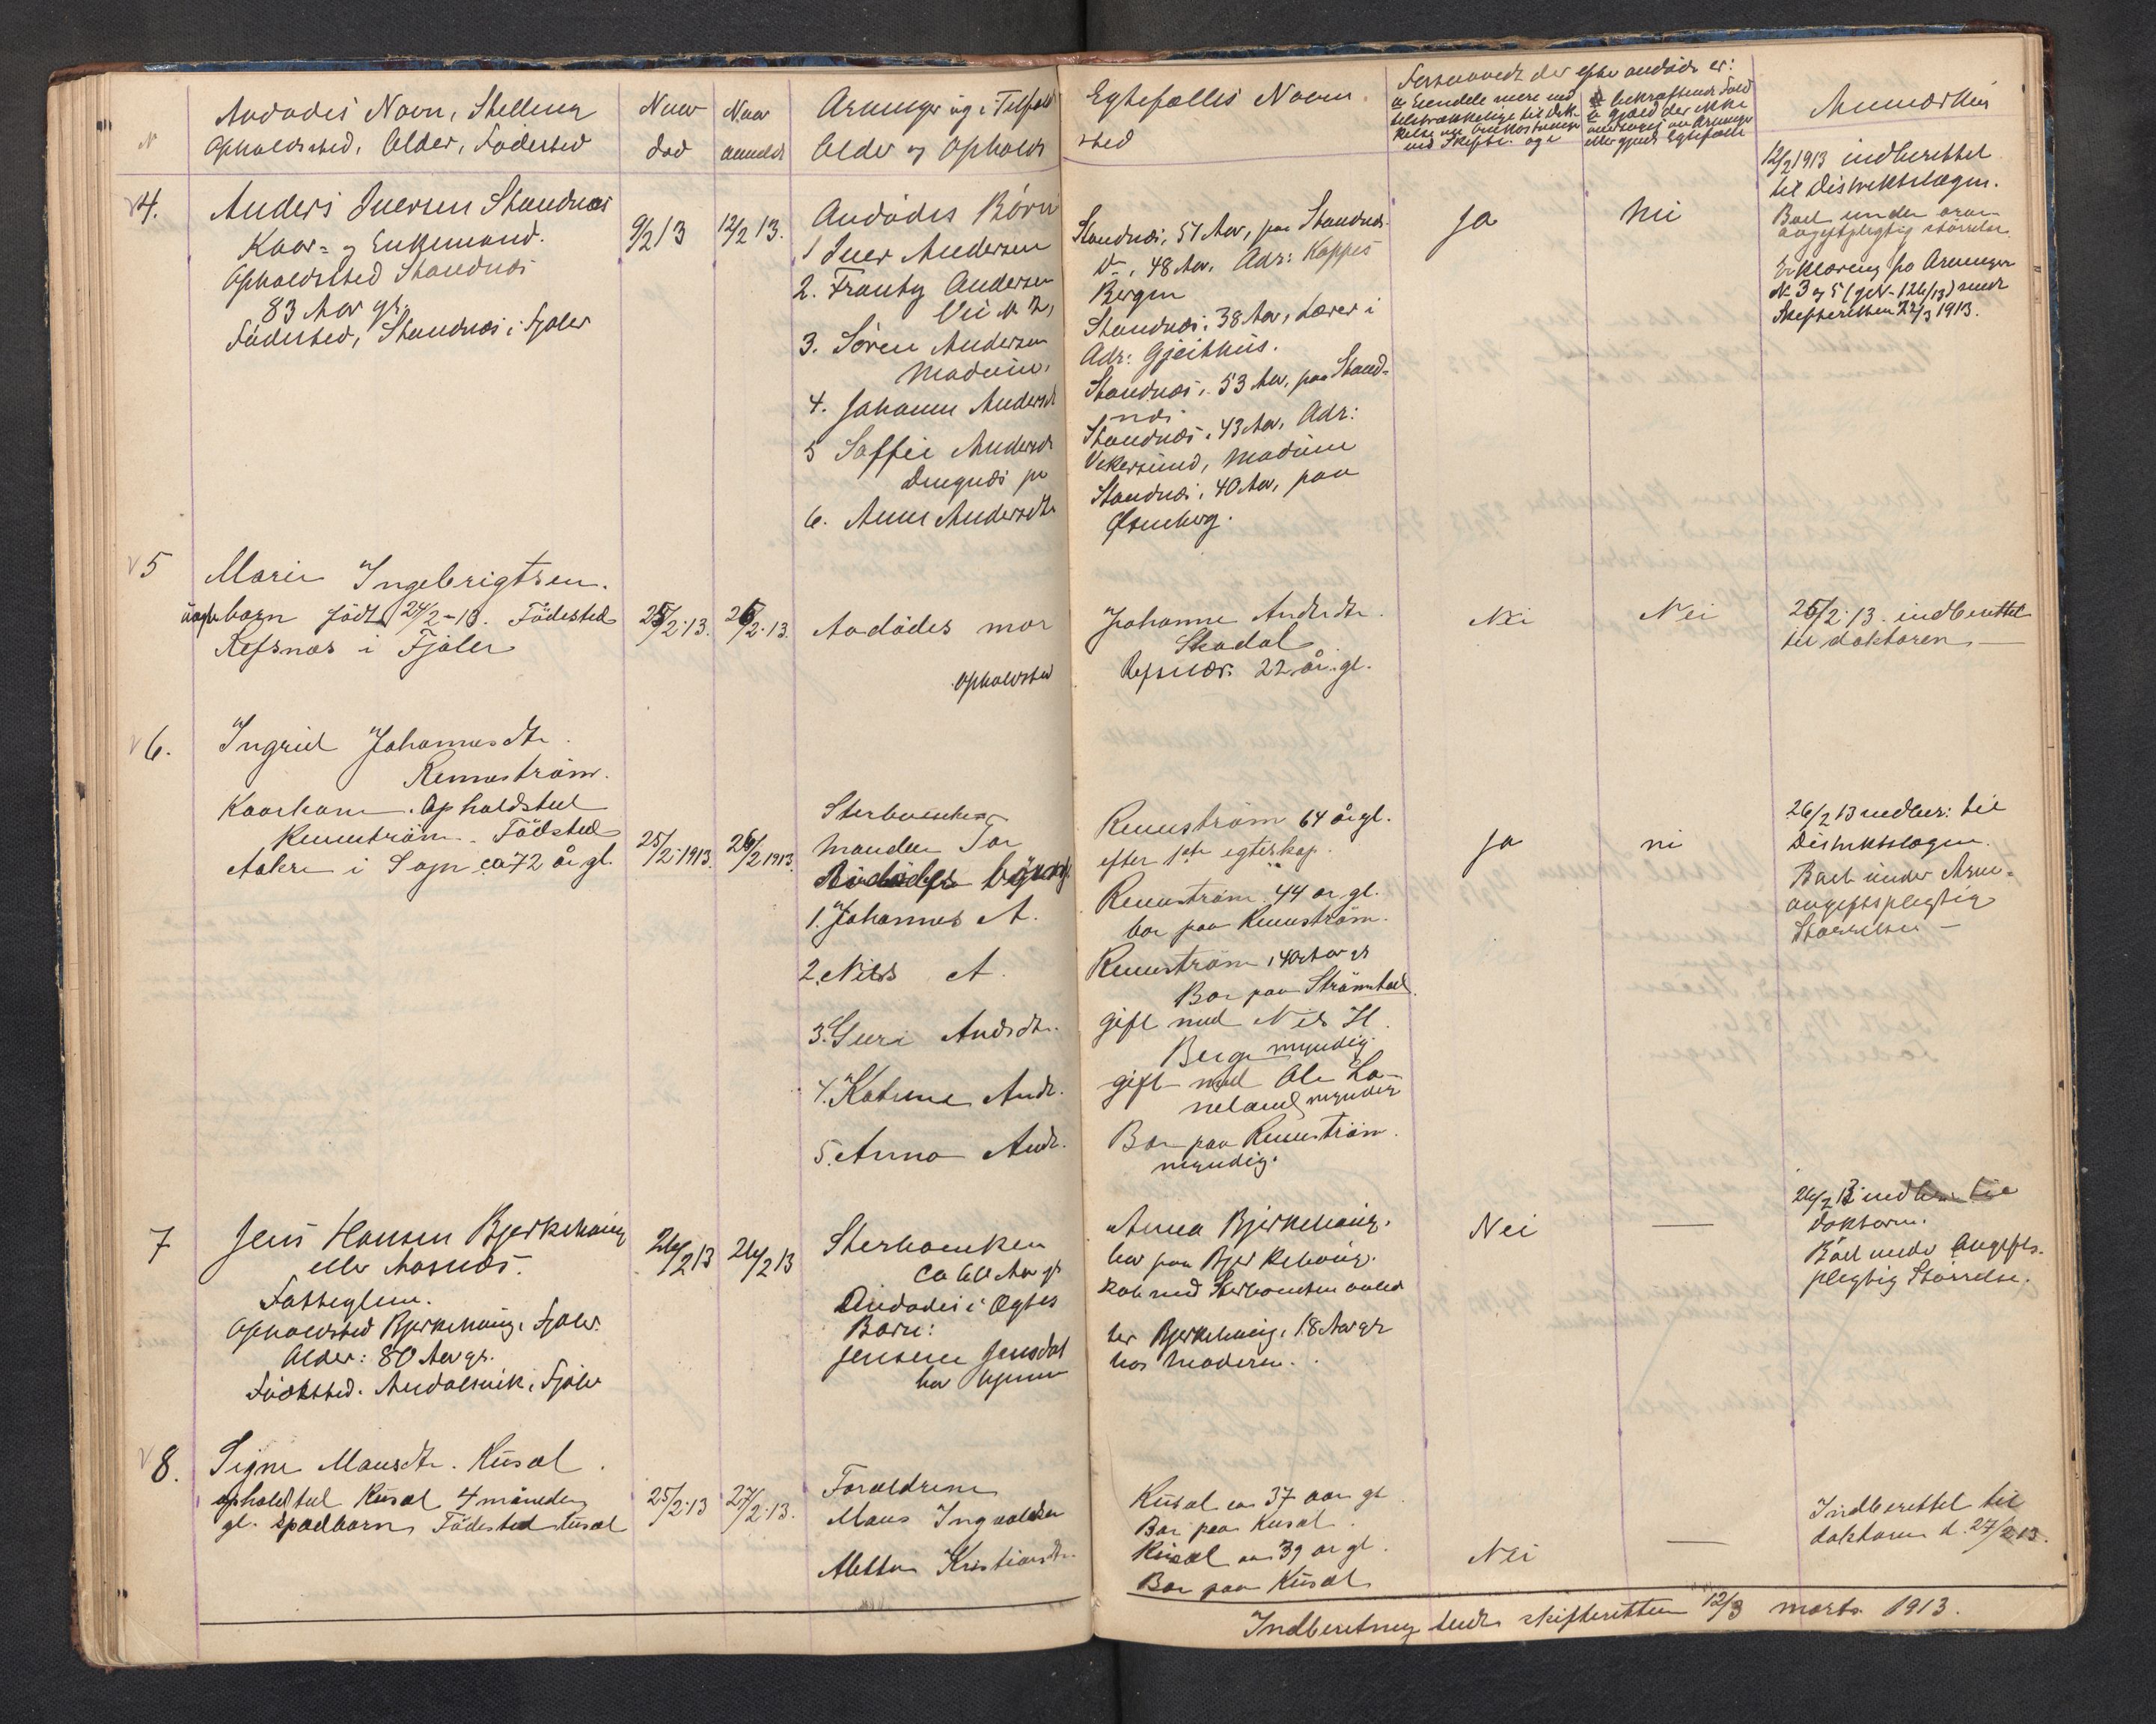 N
Avdødes Navn, Stelling
Opholdssted, Alder, Fødested
Naar
død
Naar
anmeldt
Arvinger og i Tilfæld
Alder og Ophold
Egtefælles Navn
sted
Forsaavidt der efter avdøde er:
12/2 1913 indberettet
til Distriktslægen.
Anmerkn
4.
Anders Iversen Standnæs
Kaar- og Enkemand.
Opholdssted Standnæs
83 Aar gl.
Fødested, Standnæs i Fjaler
9/2 13
12/2 13.
Avdødes Børn
1 Iver Andersen
2. Frants Andersen
Vei N. 2,
3. Søren Andersen
Modum,
4. Johanne Andersd
5 Soffie Andersd
6. Anne Andersdtr
Standnæs, 51 Aar, paa Standnæs.
48 Aar, Adr: Kappes
Bergen
Standnæs, 38 Aar, Lærer i
Adr: Gjeithus.
Standnæs, 53 Aar, paa Stand-
næs
Standnæs, 43 Aar, Adr:
Vikersund, Modum
Standnæs, 40 Aar, paa
Ja
Nei
Boet under arve-
avgiftspligtig størrelse.
Erklæring fra Arvinger
N. 3 og 5 sendt
Skifteretten 22/3 1913.
5
Marie Ingebrigtsen.
barn født 24/2-13. Fødested
Refsnæs i Fjaler
25/2.13.
26/2.13.
Avdødes mor
opholdssted
Johanne Andrsdtr.
Skadal
Refsnæs. 22 år. gl.
Nei
Nei
26/2.13. indberettet
til doktoren
6.
Ingrid Johannesdtr.
Rennestrøm.
Kaarkone. Opholdsted
Rennestrøm. Fødsted
i Sogn ca 72 år gl.
25/2.1913.
26/2 1913
manden Tor
1. Johannes A.
2. Nils A.
3. Guri Andsdtr.
4. Katrine Andr.
5. Anna Andr.
Rennestrøm 64 år gl.
efter 1ste egteskap.
Rennestrøm 44 år gl.
bor paa Rennestrøm.
Rennestrøm, 40 Aar gl
Bor paa
gift med Nils H.
Berge myndig.
gift med Ole La-
neland myndig
Bor paa Rennestrøm.
myndig.
Ja
nei
26/2 13 indber: til
Distriktslægen.
Boet under Arve-
avgiftspligtig
Størrelse
7
Jens Hansen Bjerkehaug
eller Aasnæs.
Opholdssted Bjerkehaug, Fjaler.
Alder: 80 Aar gl.
Fødested. Andalsvik, Fjaler
24/2 13
26/2 13
Sterboenken
ca 60 Aar gl
Avdødes i Ægtes
Børn:
Jensine Jensdat
bor hjemme
Anna Bjerkehaug,
bor paa Bjerkehaug.
kab med Sterboenken avled
ter Bjerkehaug, 18 Aar gl
hos Moderen.
Nei
—
26/2 13 indber. til
doktoren.
Boet under Avgifts-
pligtig Størrelse.
8.
Signe Mansdtr. Kusal.
opholdsted Kusal 4 måneder
gl. spædbarn, Fødested Kusal
25/2.13
27/2.13.
Forældrene
Mans Ingvaldsen
Aletta Kristiansdtr.
Kusal ca 37 aar gl
Bor paa Kusal.
Kusal ca 39 år gl.
Bor paa Kusal
Nei
—
Indberettet til
doktoren d. 27/2 13.
Indberetning sendt skifteretten 12/3 marts 1913.